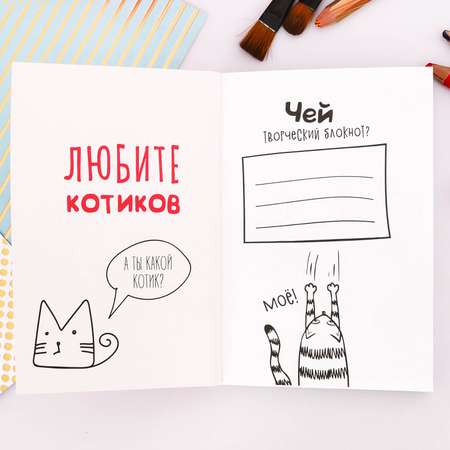 ЛЮБИТЕ
КОТИКОВ
А ТЫ КАКОЙ
КОТИК?
Чей
ТВОРЧЕСКИЙ БЛОКНОТ?
МОЁ!